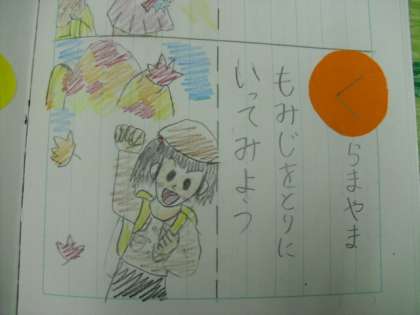 くらまやま
もみじをとりに
いってみよう